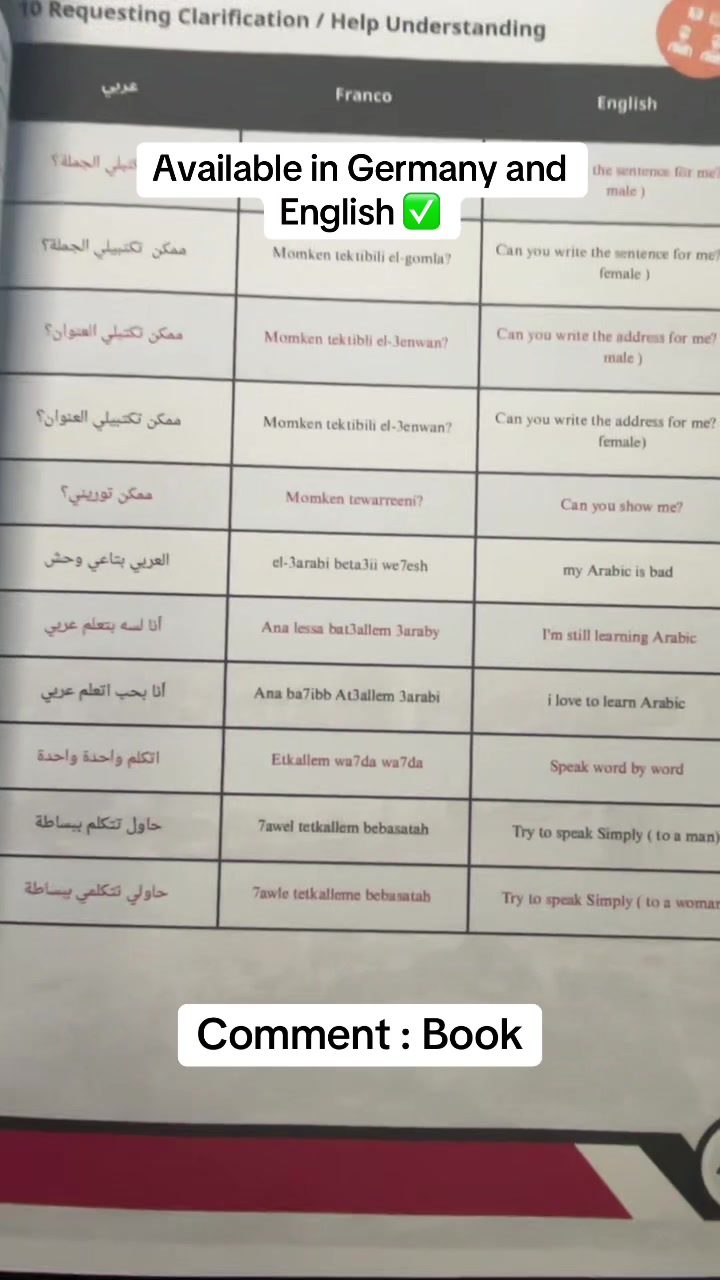 10 Requesting Clarification / Help Understanding
عربي Franco English
Available in Germany and
English ✅
الجملة؟ the sentence for me?
male )
ممكن تكتبيلي الجملة؟ Momken tektibili el-gomla? Can you write the sentence for me?
female )
ممكن تكتبلي العنوان؟ Momken tektibli el-3enwan? Can you write the address for me?
male )
ممكن تكتبيلي العنوان؟ Momken tektibili el-3enwan? Can you write the address for me?
female)
ممكن توريني؟ Momken tewarreeni? Can you show me?
العربي بتاعي وحش el-3arabi beta3ii we7esh my Arabic is bad
أنا لسه بتعلم عربي Ana lessa bat3allem 3araby I'm still learning Arabic
أنا بحب اتعلم عربي Ana ba7ibb At3allem 3arabi i love to learn Arabic
اتكلم واحدة واحدة Etkallem wa7da wa7da Speak word by word
حاول تتكلم ببساطة 7awel tetkallem bebasatah Try to speak Simply ( to a man)
حاولي تتكلمي ببساطة 7awle tetkalleme bebasatah Try to speak Simply ( to a
Comment : Book